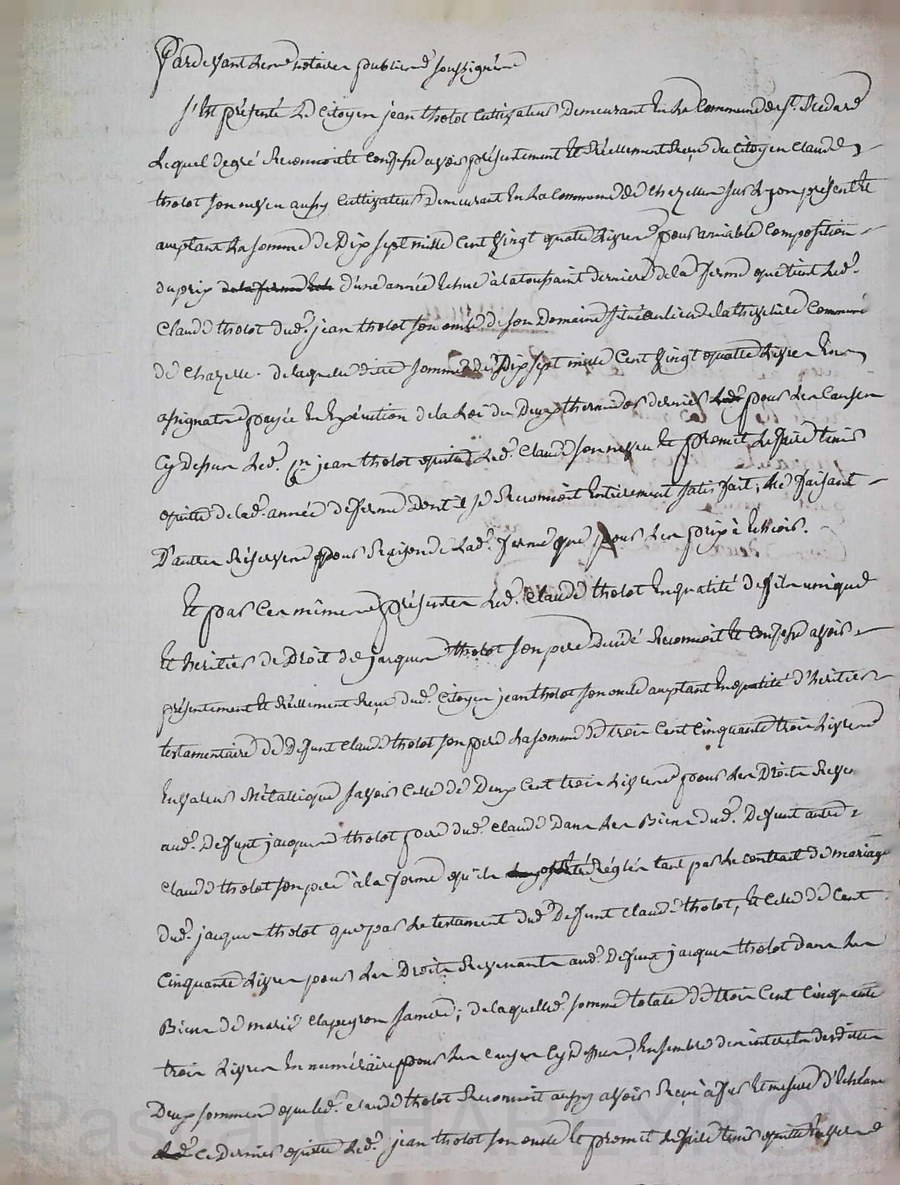 Pardevant les notaires publics soussignés
S'est présenté Le Citoyen jean tholot Cultivateur Demeurant En La Commune de St. Medard
Lequel de gré Reconnoit et Confesse avoir présentement Et Réellement Reçu du Citoyen Claude
tholot Son neveu aussy Cultivateur Demeurant En La Commune de Chazelles Sur Lyon présent Et
acceptant La somme de Dix sept mille Cent Vingt quatre Livres pour amiable Composition
du prix de la ferme d'une année Echue à la toussaint derniere de la ferme que tient Led.
Claude tholot dud. jean tholot son oncle de son Domaine Situé au lieu de Commune
de Chazelle. de laquelle ditte somme de Dix sept mille Cent Vingt quatre Livres En
assignats payée En Exécution de la Loi du Deux thermidor dernier pour Les Causes
Cy dessus Led. jean tholot quitte Led. Claude son neveu Et promet Le faire tenir
quitte de lad. année de ferme dont il se Reconnoit Entierement Satisfait, Ne faisant
D'autres Réserves pour Raison de Lad. ferme que pour Les prix à Echeoir.
Et par Ces mêmes présentes Led. Claude tholot En qualité de fils unique
Et heritier de Droit de jacques tholot son pere Decédé Reconnoit Et Confesse avoir
présentement Et Réellement Reçu dud. Citoyen jean tholot son oncle acceptant En qualité d'heritier
testamentaire de Defunt Claude tholot son pere La somme de trois Cent Cinquante trois Livres
En valeur Métallique savoir Celle de Deux Cent trois Livres pour Les Droits
aud. Defunt jacques tholot pere dud. Claude Dans Les Biens dud. Defunt autre
Claude tholot son pere à la forme qu'ils Réglés tant par Le contrat de mariage
dud. jacques tholot que par Le testament dud. Defunt Claude tholot, Et Celle de Cent
Cinquante Livres pour Les Droits Revenants aud. Defunt jacques tholot dans Les
Biens de marie Clapeyron sa mere; de laquelle somme totale de trois Cent Cinquante
trois Livres En numéraire pour Les Causes Cy Dessus, Ensemble des interets desdittes
Deux sommes que led. Claude tholot Reconnoit aussy avoir Reçu à fur Et mesure d'Echeance
Ce Dernier quitte Led. jean tholot son oncle Et promet Le faire tenir quitte Envers
Pascal CHAREYRON